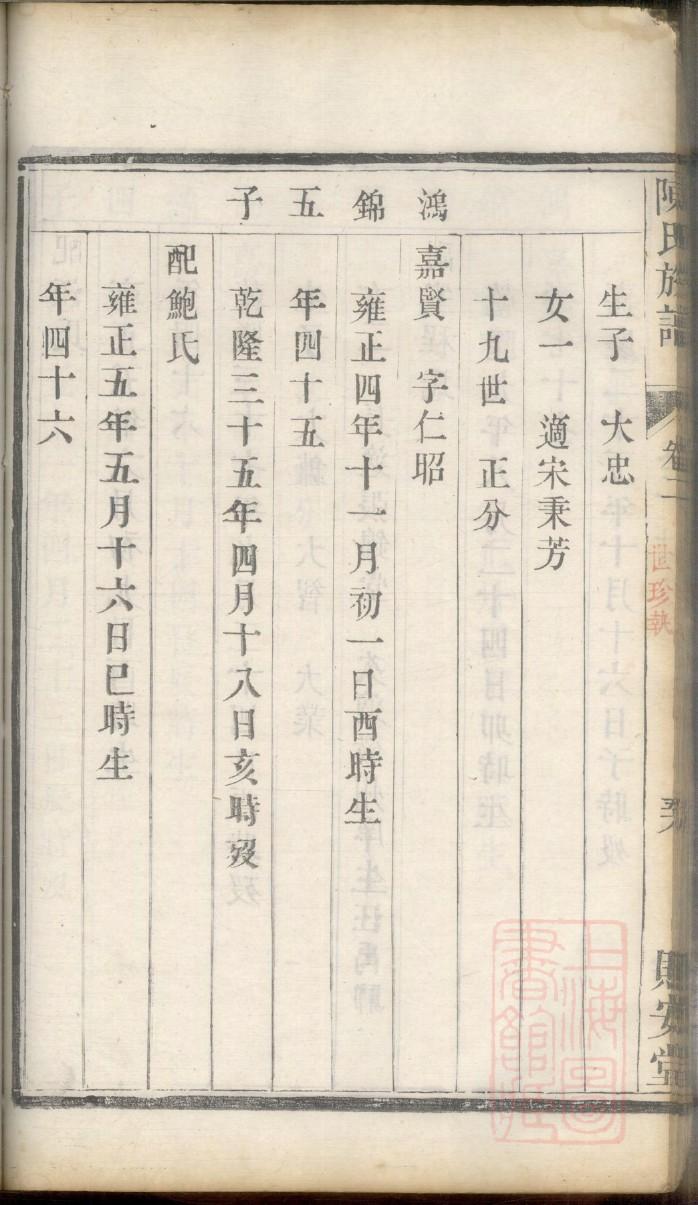 陳氏族譜
卷二
世珍執
則安堂
上海圖書館藏
鴻錦五子
生子 大忠
女一 適宋秉芳
十九世 正分
嘉賢 字仁昭
雍正四年十一月初一日酉時生
年四十五
乾隆三十五年四月十八日亥時歿
配鮑氏
雍正五年五月十六日巳時生
年四十六